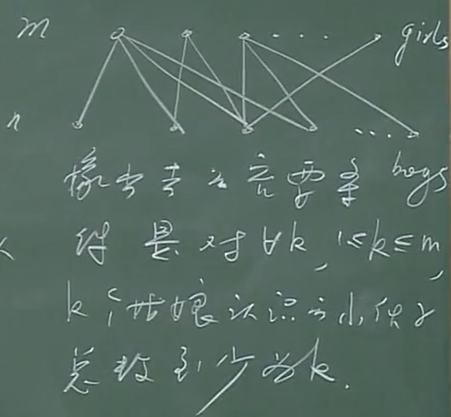 m ... girls
n ... boys
嫁出去之充要条
件是对∀k, 1≤k≤m,
k个姑娘认识之小伙子
总数至少为k.